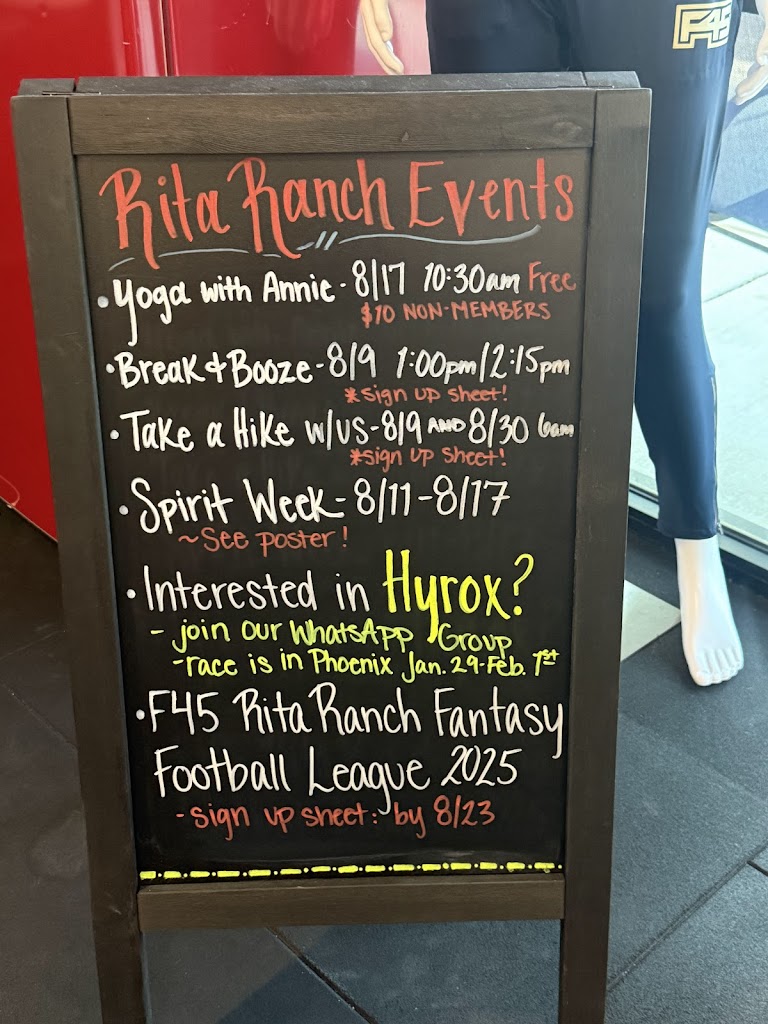 F45
Rita Ranch Events
• Yoga with Annie - 8/17 10:30am Free
$10 NON-MEMBERS
• Break + Booze - 8/9 1:00pm/2:15pm
*sign up sheet!
• Take a Hike w/us - 8/9 AND 8/30 6am
*sign up sheet!
• Spirit Week - 8/11-8/17
~See poster!
• Interested in Hyrox?
- join our WhatsApp Group
- race is in Phoenix Jan. 29-Feb. 1st
• F45 Rita Ranch Fantasy
Football League 2025
- sign up sheet: by 8/23